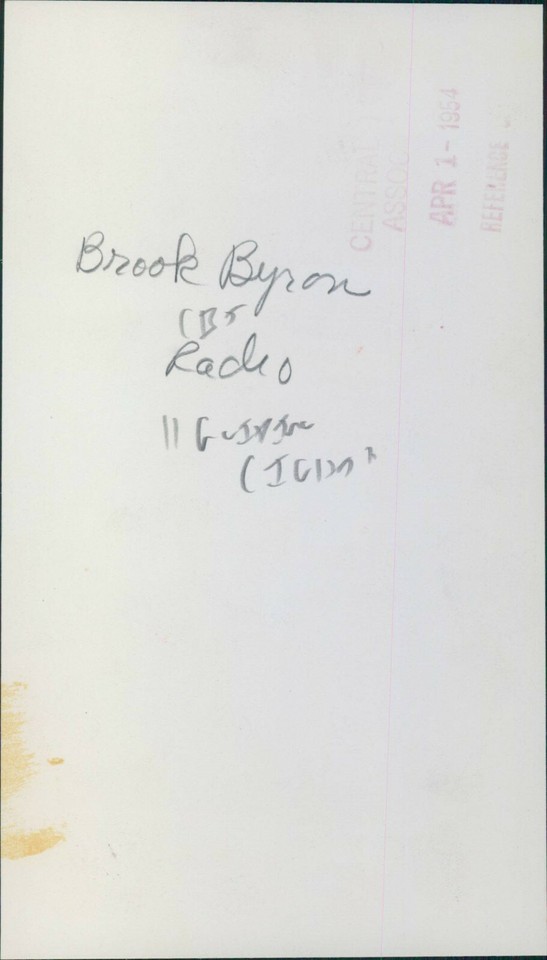 Brook Byron
CBS
Radio
CENTRAL
ASSOC
APR 1 - 1954
REFERENCE